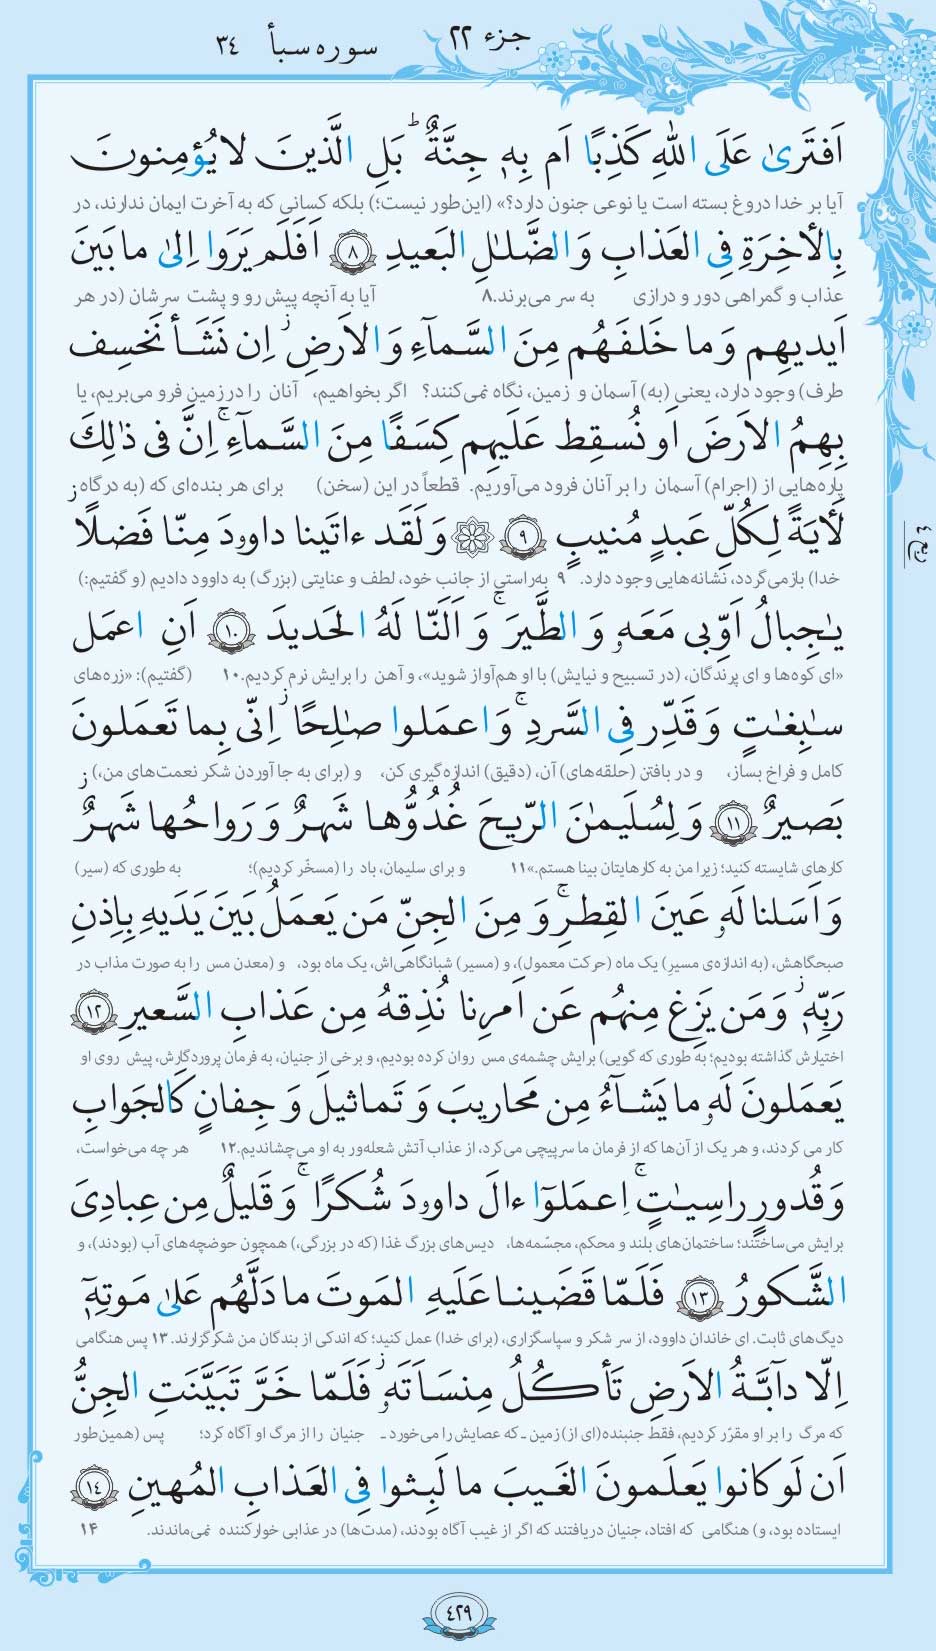 جزء ۲۲
سوره سبأ ۳٤
اَفتَرىٰ عَلَى اللهِ كَذِبًا اَم بِهٖ جِنَّةٌ ؕ بَلِ الَّذينَ لا يُؤمِنونَ
آیا بر خدا دروغ بسته است یا نوعی جنون دارد؟» (این‌طور نیست؛) بلکه کسانی که به آخرت ایمان ندارند، در
بِالاٰخِرَةِ فِى العَذابِ وَ الضَّلـٰلِ البَعيدِ ۸ اَفَلَم يَرَوا اِلىٰ ما بَينَ
عذاب و گمراهی دور و درازی به سر می‌برند.۸ آیا به آنچه پیش رو و پشت سرشان (در هر
اَيديهِم وَ ما خَلفَهُم مِنَ السَّمآءِ وَ الاَرضِ ز اِن نَشَأ نَخسِف
طرف) وجود دارد، یعنی (به) آسمان و زمین، نگاه نمی‌کنند؟ اگر بخواهیم، آنان را در زمین فرو می‌بریم، یا
بِهِمُ الاَرضَ اَو نُسقِط عَلَيهِم كِسَفًا مِنَ السَّمآءِ ۚ اِنَّ فى ذٰلِكَ
پاره‌هایی از (اجرام) آسمان را بر آنان فرود می‌آوریم. قطعاً در این (سخن) برای هر بنده‌ای که (به درگاه
لَأٰيَةً لِكُلِّ عَبدٍ مُنيبٍ ۹ وَ لَقَد ءاتَينا داوودَ مِنّا فَضلًا ز
خدا) بازمی‌گردد، نشانه‌هایی وجود دارد. ۹ به‌راستی از جانب خود، لطف و عنایتی (بزرگ) به داوود دادیم (و گفتیم:)
يـٰجِبالُ اَوِّبى مَعَهٗ وَ الطَّيرَ ۚ وَ اَلَنّا لَهُ الحَديدَ ۱۰ اَنِ اعمَل
«ای کوه‌ها و ای پرندگان، (در تسبیح و نیایش) با او هم‌آواز شوید»، و آهن را برایش نرم کردیم.۱۰ (گفتیم): «زره‌های
سـٰبِغـٰتٍ وَ قَدِّر فِى السَّردِ ۚ وَ اعمَلوا صـٰلِحًا ز اِنّى بِما تَعمَلونَ
کامل و فراخ بساز، و در بافتن (حلقه‌های) آن، (دقیق) اندازه‌گیری کن، و (برای به جا آوردن شکر نعمت‌های من،)
بَصيرٌ ۱۱ وَ لِسُلَيمـٰنَ الرّيحَ غُدُوُّها شَهرٌ وَ رَواحُها شَهرٌ ز
کارهای شایسته کنید؛ زیرا من به کارهایتان بینا هستم.»۱۱ و برای سلیمان، باد را (مسخّر کردیم)؛ به طوری که (سیر)
وَ اَسَلنا لَهٗ عَينَ القِطرِ ۚ وَ مِنَ الجِنِّ مَن يَعمَلُ بَينَ يَدَيهِ بِاِذنِ
صبحگاهش، (به اندازه‌ی مسیر) یک ماه (حرکت معمول)، و (مسیر) شبانگاهی‌اش، یک ماه بود، و (معدن مس را به صورت مذاب در
رَبِّهٖ ز وَ مَن يَزِغ مِنهُم عَن اَمرِنا نُذِقهُ مِن عَذابِ السَّعيرِ ۱۲
اختیارش گذاشته بودیم؛ به طوری که گویی) برایش چشمه‌ی مس روان کرده بودیم، و برخی از جنیان، به فرمان پروردگارش، پیش روی او
يَعمَلونَ لَهٗ ما يَشآءُ مِن مَحاريبَ وَ تَماثيلَ وَ جِفانٍ كَالجَوابِ
کار می کردند، و هر یک از آن‌ها که از فرمان ما سرپیچی می‌کرد، از عذاب آتش شعله‌ور به او می‌چشاندیم.۱۲ هر چه می‌خواست،
وَ قُدورٍ راسِيـٰتٍ ۚ اِعمَلوٓا ءالَ داوودَ شُكرًا ۚ وَ قَليلٌ مِن عِبادِىَ
برایش می‌ساختند؛ ساختمان‌های بلند و محکم، مجسّمه‌ها، دیس‌های بزرگ غذا (که در بزرگی،) همچون حوضچه‌های آب (بودند)، و
الشَّكورُ ۱۳ فَلَمّا قَضَينا عَلَيهِ المَوتَ ما دَلَّهُم عَلىٰ مَوتِهٖٓ
دیگ‌های ثابت. ای خاندان داوود، از سر شکر و سپاسگزاری، (برای خدا) عمل کنید؛ که اندکی از بندگان من شکرگزارند. ۱۳ پس هنگامی
اِلّا دآبَّةُ الاَرضِ تَأكُلُ مِنسَاَتَهٗ ز فَلَمّا خَرَّ تَبَيَّنَتِ الجِنُّ
که مرگ را بر او مقرّر کردیم، فقط جنبنده(ای از) زمین ـ که عصایش را می‌خورد ـ جنیان را از مرگ او آگاه کرد؛ پس (همین‌طور
اَن لَو كانوا يَعلَمونَ الغَيبَ ما لَبِثوا فِى العَذابِ المُهينِ ۱٤
ایستاده بود، و) هنگامی که افتاد، جنیان دریافتند که اگر از غیب آگاه بودند، (مدت‌ها) در عذابی خوارکننده نمی‌ماندند. ۱۴
ربع ٤
٤۲۹